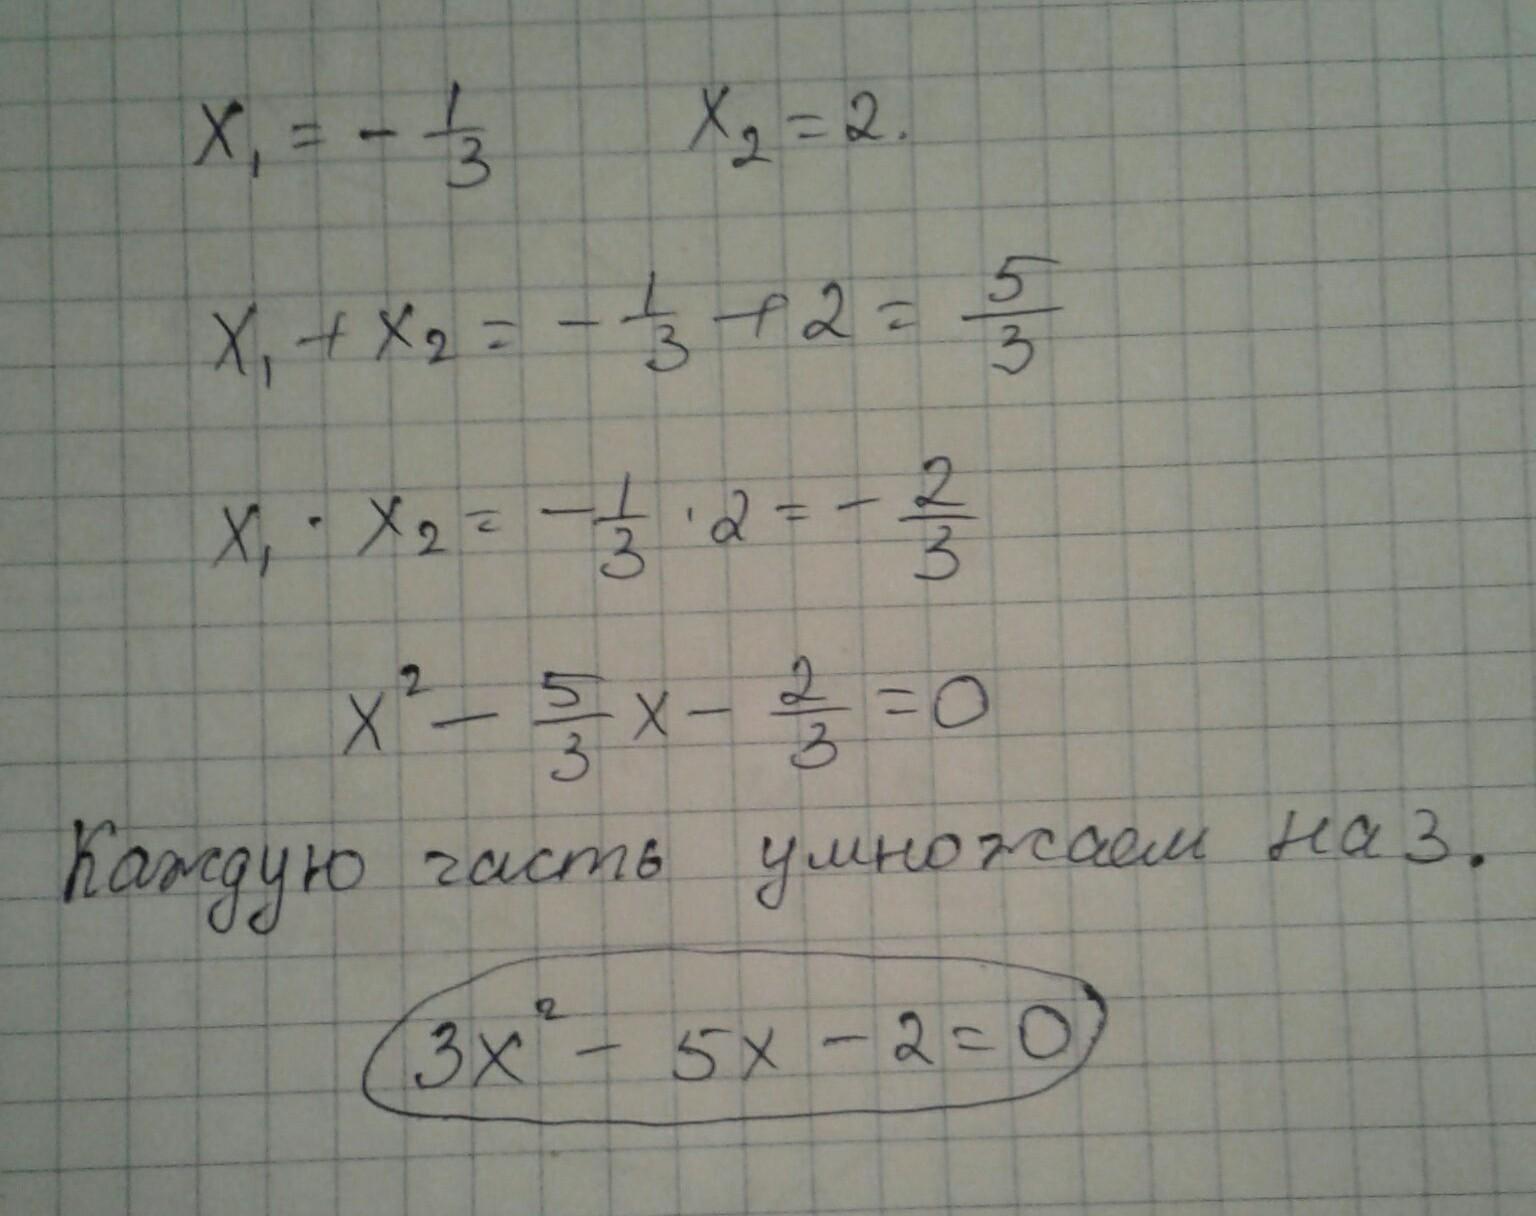 x₁ = - 1/3 x₂ = 2.
x₁ + x₂ = - 1/3 + 2 = 5/3
x₁ · x₂ = - 1/3 · 2 = - 2/3
x² - 5/3 x - 2/3 = 0
Каждую часть умножаем на 3.
3x² - 5x - 2 = 0